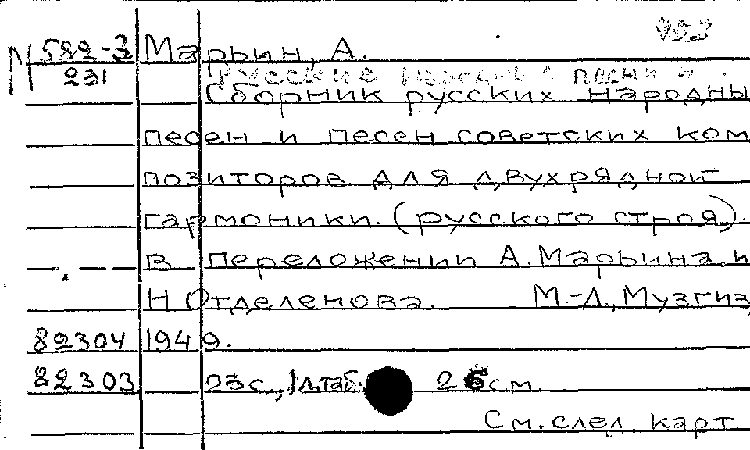 N 582-3 Марьин, А.
231 Русские народные песни
Сборник русских народны
песен и песен советских ком
позиторов для двухрядной
гармоники (русского строя).
В переложении А. Марьина и
Н Отделенова. М.-Л., Музгиз,
82304 1949.
82303 23с., 1 л.таб. 26 см.
См. след. карт